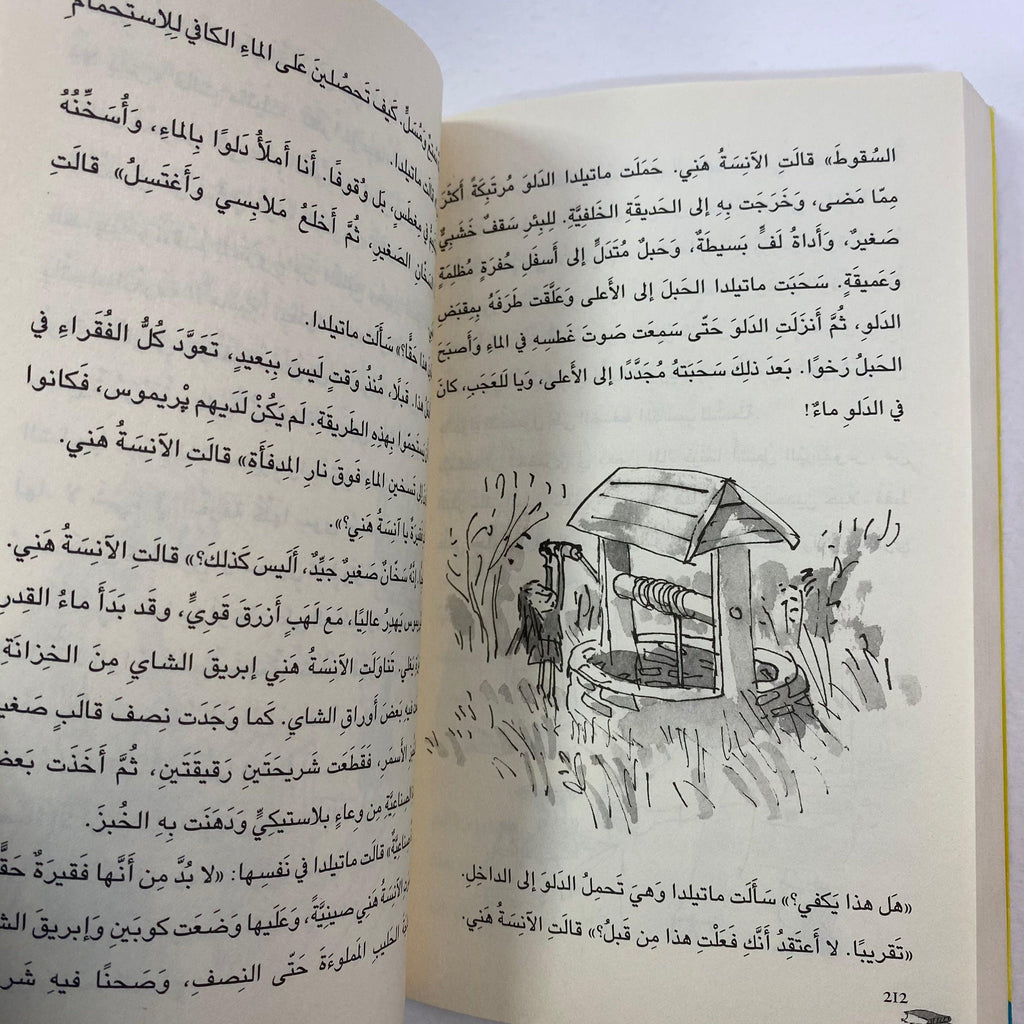 السُقوطَ» قالَتِ الآنِسَةُ هَنِي. حَمَلَت ماتيلدا الدَلوَ مُرتَبِكَةً أَكثَرَ
مِمّا مَضى، وَخَرَجَت بِهِ إلى الحَديقَةِ الخَلفِيَّةِ. لِلبِئرِ سَقفٌ خَشَبِيٌّ
صَغيرٌ، وَأَداةُ لَفٍّ بَسيطَةٌ، وَحَبلٌ مُتَدَلٍّ إلى أَسفَلِ حُفرَةٍ مُظلِمَةٍ
وَعَميقَةٍ. سَحَبَت ماتيلدا الحَبلَ إلى الأَعلى وَعَلَّقَت طَرَفَهُ بِمِقبَضِ
الدَلوِ، ثُمَّ أَنزَلَتِ الدَلوَ حَتّى سَمِعَت صَوتَ غَطسِهِ في الماءِ وَأَصبَحَ
الحَبلُ رَخوًا. بَعدَ ذلِكَ سَحَبَتهُ مُجَدَّدًا إلى الأَعلى، وَيا لَلعَجَبِ، كانَ
في الدَلوِ ماءٌ!
«هَل هذا يَكفي؟» سَأَلَت ماتيلدا وَهيَ تَحمِلُ الدَلوَ إلى الداخِلِ.
«تَقريبًا. لا أَعتَقِدُ أَنَّكِ فَعَلْتِ هذا مِن قَبلُ؟» قالَتِ الآنِسَةُ هَنِي.
212
وَمُسَلٍّ. كَيفَ تَحصُلينَ عَلى الماءِ الكافي لِلِاستِحمامِ
قالَت ماتيلدا.
في مِغطَسٍ، بَل وُقوفًا. أَنا أَملَأُ دَلوًا بِالماءِ، وَأُسَخِّنُهُ
الصَغيرِ، ثُمَّ أَخلَعُ مَلابِسي وَأَغتَسِلُ» قالَتِ
هذا حَقًّا؟» سَأَلَت ماتيلدا.
هذا. قَبلًا، مُنذُ وَقتٍ لَيسَ بِبَعيدٍ، تَعَوَّدَ كُلُّ الفُقَراءِ في
بِهذِهِ الطَريقَةِ. لَم يَكُنْ لَدَيهِم پْريموس، فَكانوا
تَسخينِ الماءِ فَوقَ نارِ المِدفَأَةِ» قالَتِ الآنِسَةُ هَنِي.
يا آنِسَةُ هَنِي؟».
إنَّهُ سَخّانٌ صَغيرٌ جَيِّدٌ، أَلَيسَ كَذلِكَ؟» قالَتِ الآنِسَةُ هَنِي.
يَهدِرُ عالِيًا، مَعَ لَهَبٍ أَزرَقَ قَوِيٍّ، وَقَد بَدَأَ ماءُ القِدرِ
تَناوَلَتِ الآنِسَةُ هَنِي إبريقَ الشايِ مِنَ الخِزانَةِ
بَعضَ أَوراقِ الشايِ. كَما وَجَدَت نِصفَ قالَبٍ
الأَسمَرِ، فَقَطَعَت شَريحَتَينِ رَقيقَتَينِ، ثُمَّ أَخَذَت
مِن وِعاءٍ بلاستيكِيٍّ وَدَهَنَت بِهِ الخُبزَ.
قالَت ماتيلدا في نَفسِها: «لا بُدَّ مِن أَنَّها فَقيرَةٌ حَقًّا
الآنِسَةُ هَنِي صينِيَّةً، وَعَلَيها وَضَعَت كوبَينِ وَإبريقَ
الحَليبِ المَملوءَةَ حَتّى النِصفِ، وَصَحنًا فيهِ